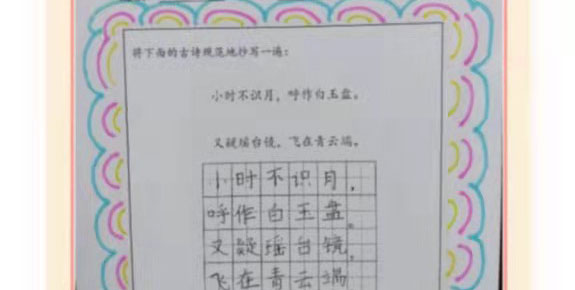 将下面的古诗规范地抄写一遍：
小时不识月，呼作白玉盘。
又疑瑶台镜，飞在青云端。
小时不识月，
呼作白玉盘。
又疑瑶台镜，
飞在青云端